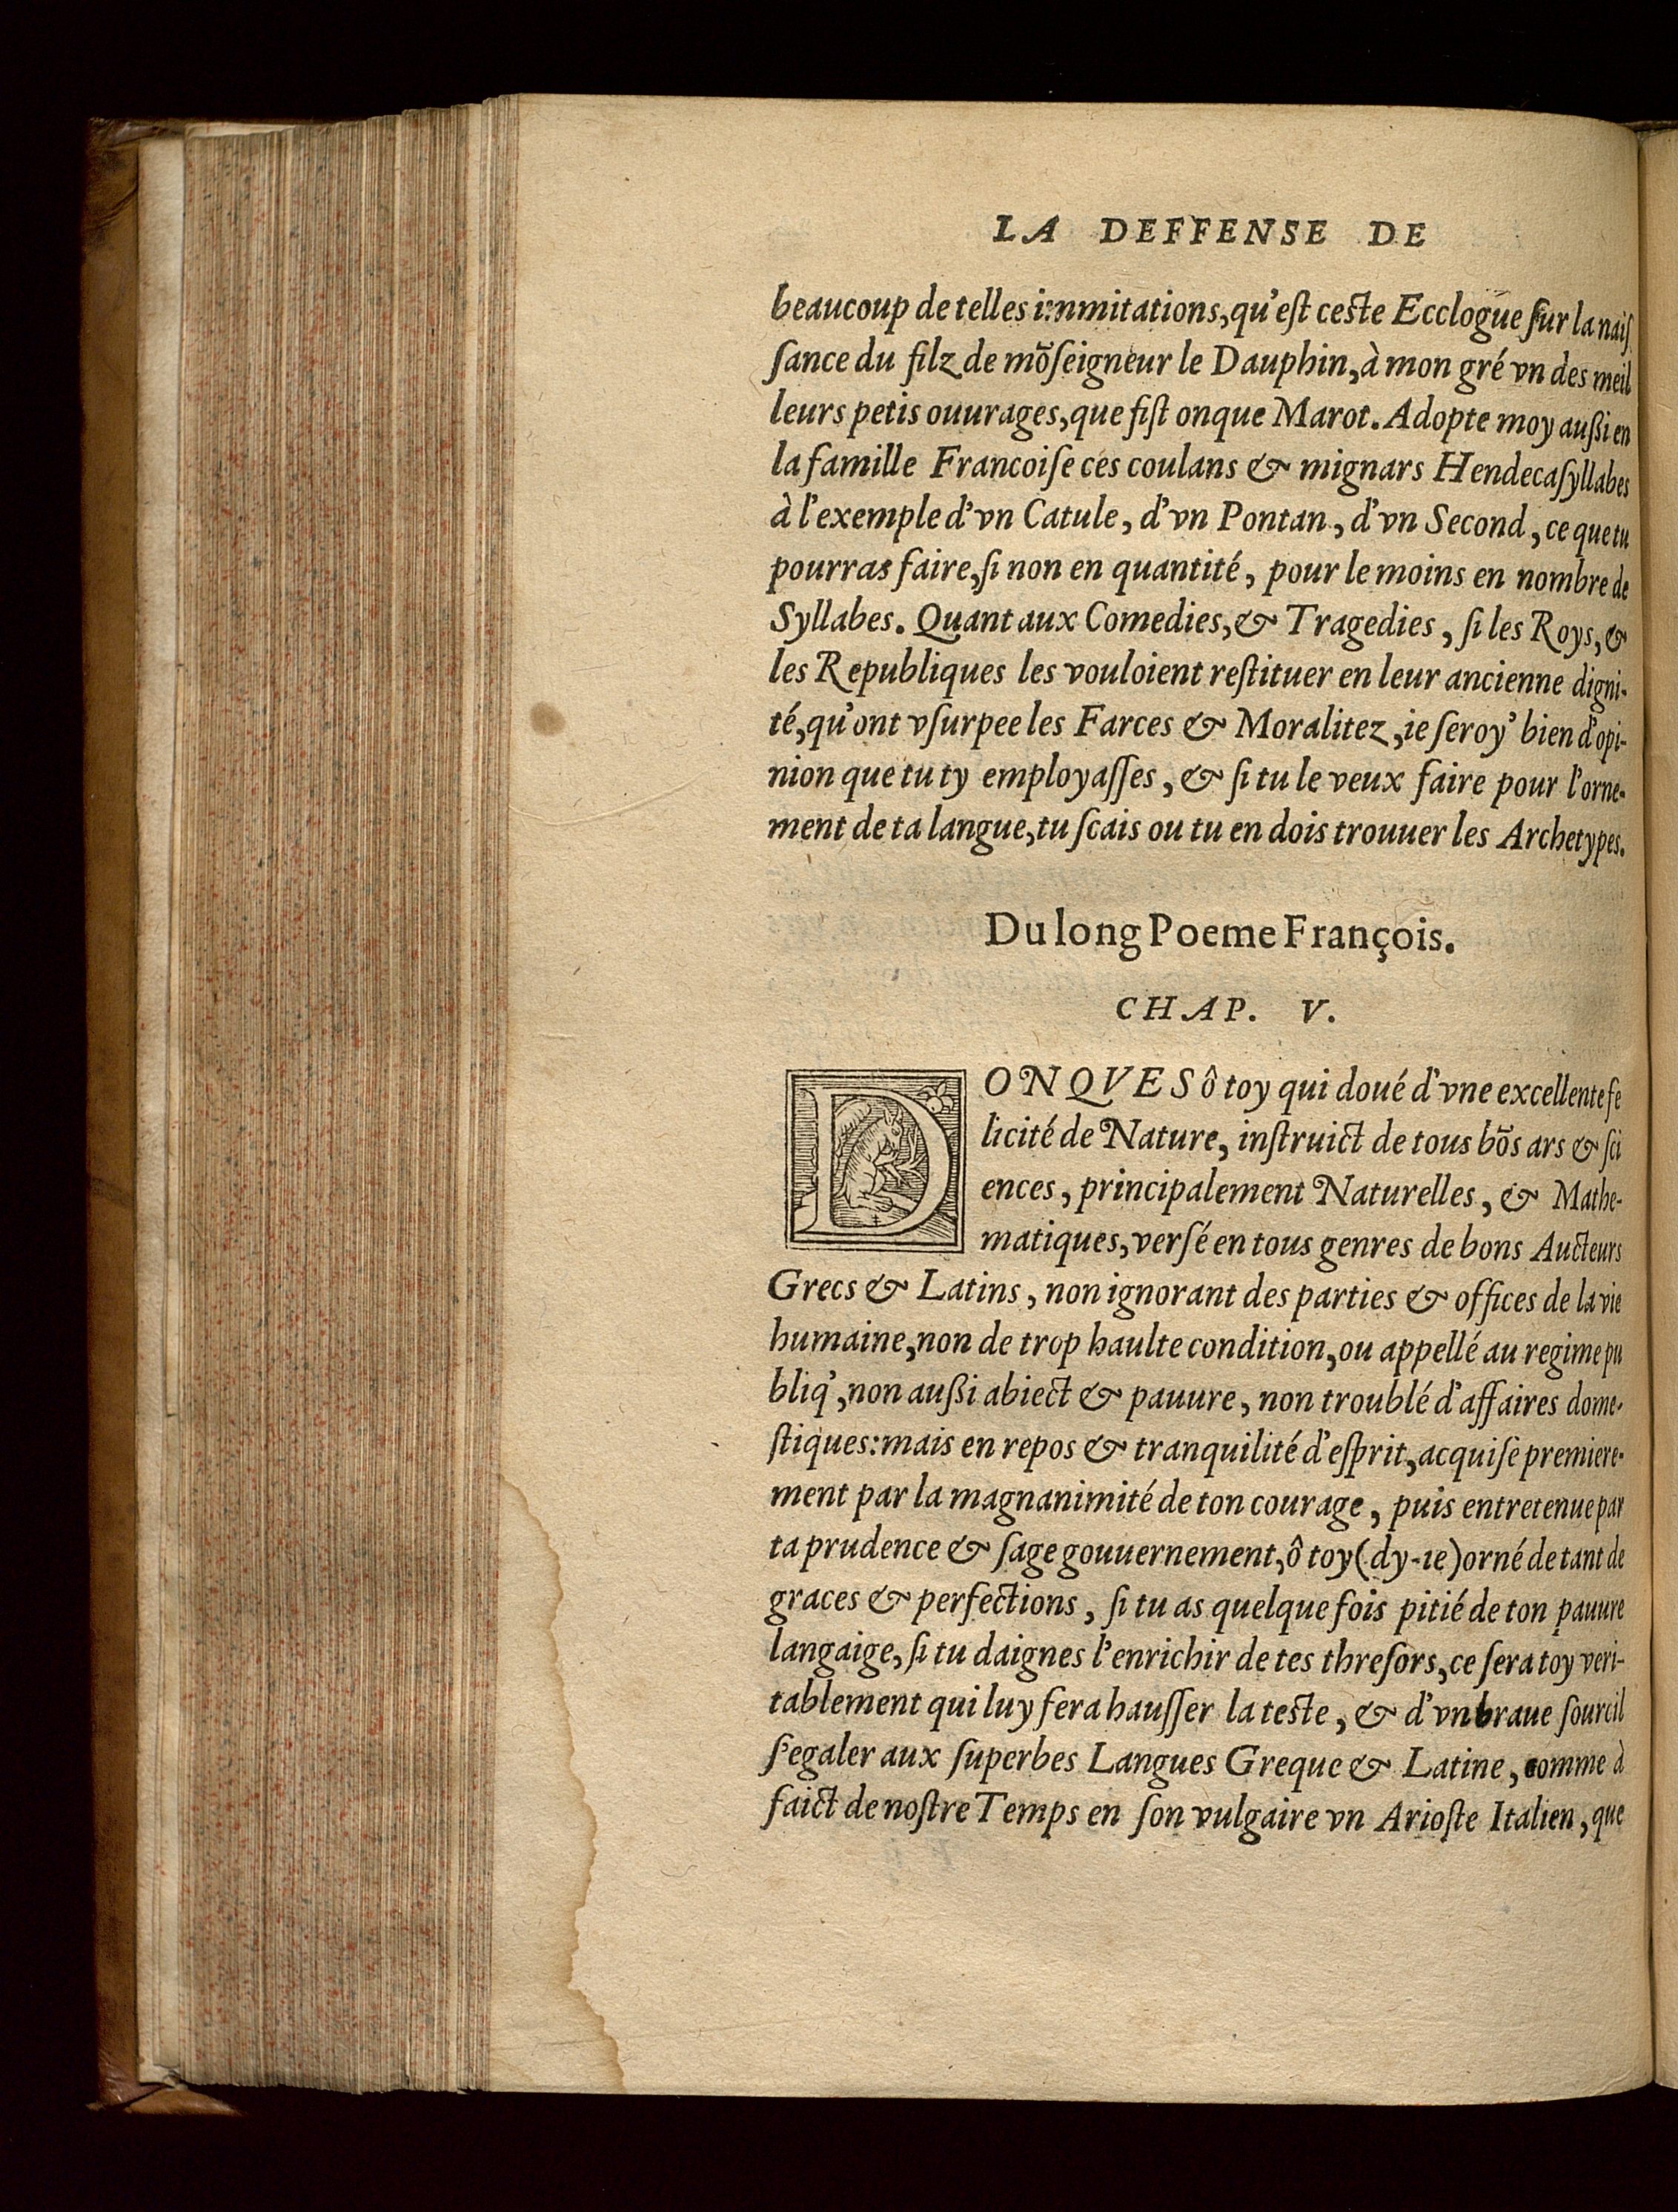 LA DEFFENSE DE
beaucoup de telles immitations, qu'eſt ceſte Ecclogue ſur la naiſ
ſance du filz de mõſeigneur le Dauphin, à mon gré vn des meil
leurs petis ouurages, que fiſt onque Marot. Adopte moy außi en
la famille Francoiſe ces coulans & mignars Hendecaſyllabes
à l'exemple d'vn Catule, d'vn Pontan, d'vn Second, ce que tu
pourras faire, ſi non en quantité, pour le moins en nombre de
Syllabes. Quant aux Comedies, & Tragedies, ſi les Roys, &
les Republiques les vouloient reſtituer en leur ancienne digni-
té, qu'ont vſurpee les Farces & Moralitez, ie ſeroy' bien d'opi-
nion que tu ty employaſſes, & ſi tu le veux faire pour l'orne-
ment de ta langue, tu ſcais ou tu en dois trouuer les Archetypes.
Du long Poeme François.
CHAP. V.
DONQVES ô toy qui doué d'vne excellente fe
licité de Nature, inſtruict de tous bõs ars & ſci
ences, principalement Naturelles, & Mathe-
matiques, verſé en tous genres de bons Aucteurs
Grecs & Latins, non ignorant des parties & offices de la vie
humaine, non de trop haulte condition, ou appellé au regime pu
bliq', non außi abiect & pauure, non troublé d'affaires dome-
ſtiques: mais en repos & tranquilité d'eſprit, acquiſe premiere-
ment par la magnanimité de ton courage, puis entretenue par
ta prudence & ſage gouuernement, ô toy (dy-ie) orné de tant de
graces & perfections, ſi tu as quelque fois pitié de ton pauure
langaige, ſi tu daignes l'enrichir de tes threſors, ce ſera toy veri-
tablement qui luy fera hauſſer la teſte, & d'vn braue ſourcil
s'egaler aux ſuperbes Langues Greque & Latine, comme à
faict de noſtre Temps en ſon vulgaire vn Arioſte Italien, que